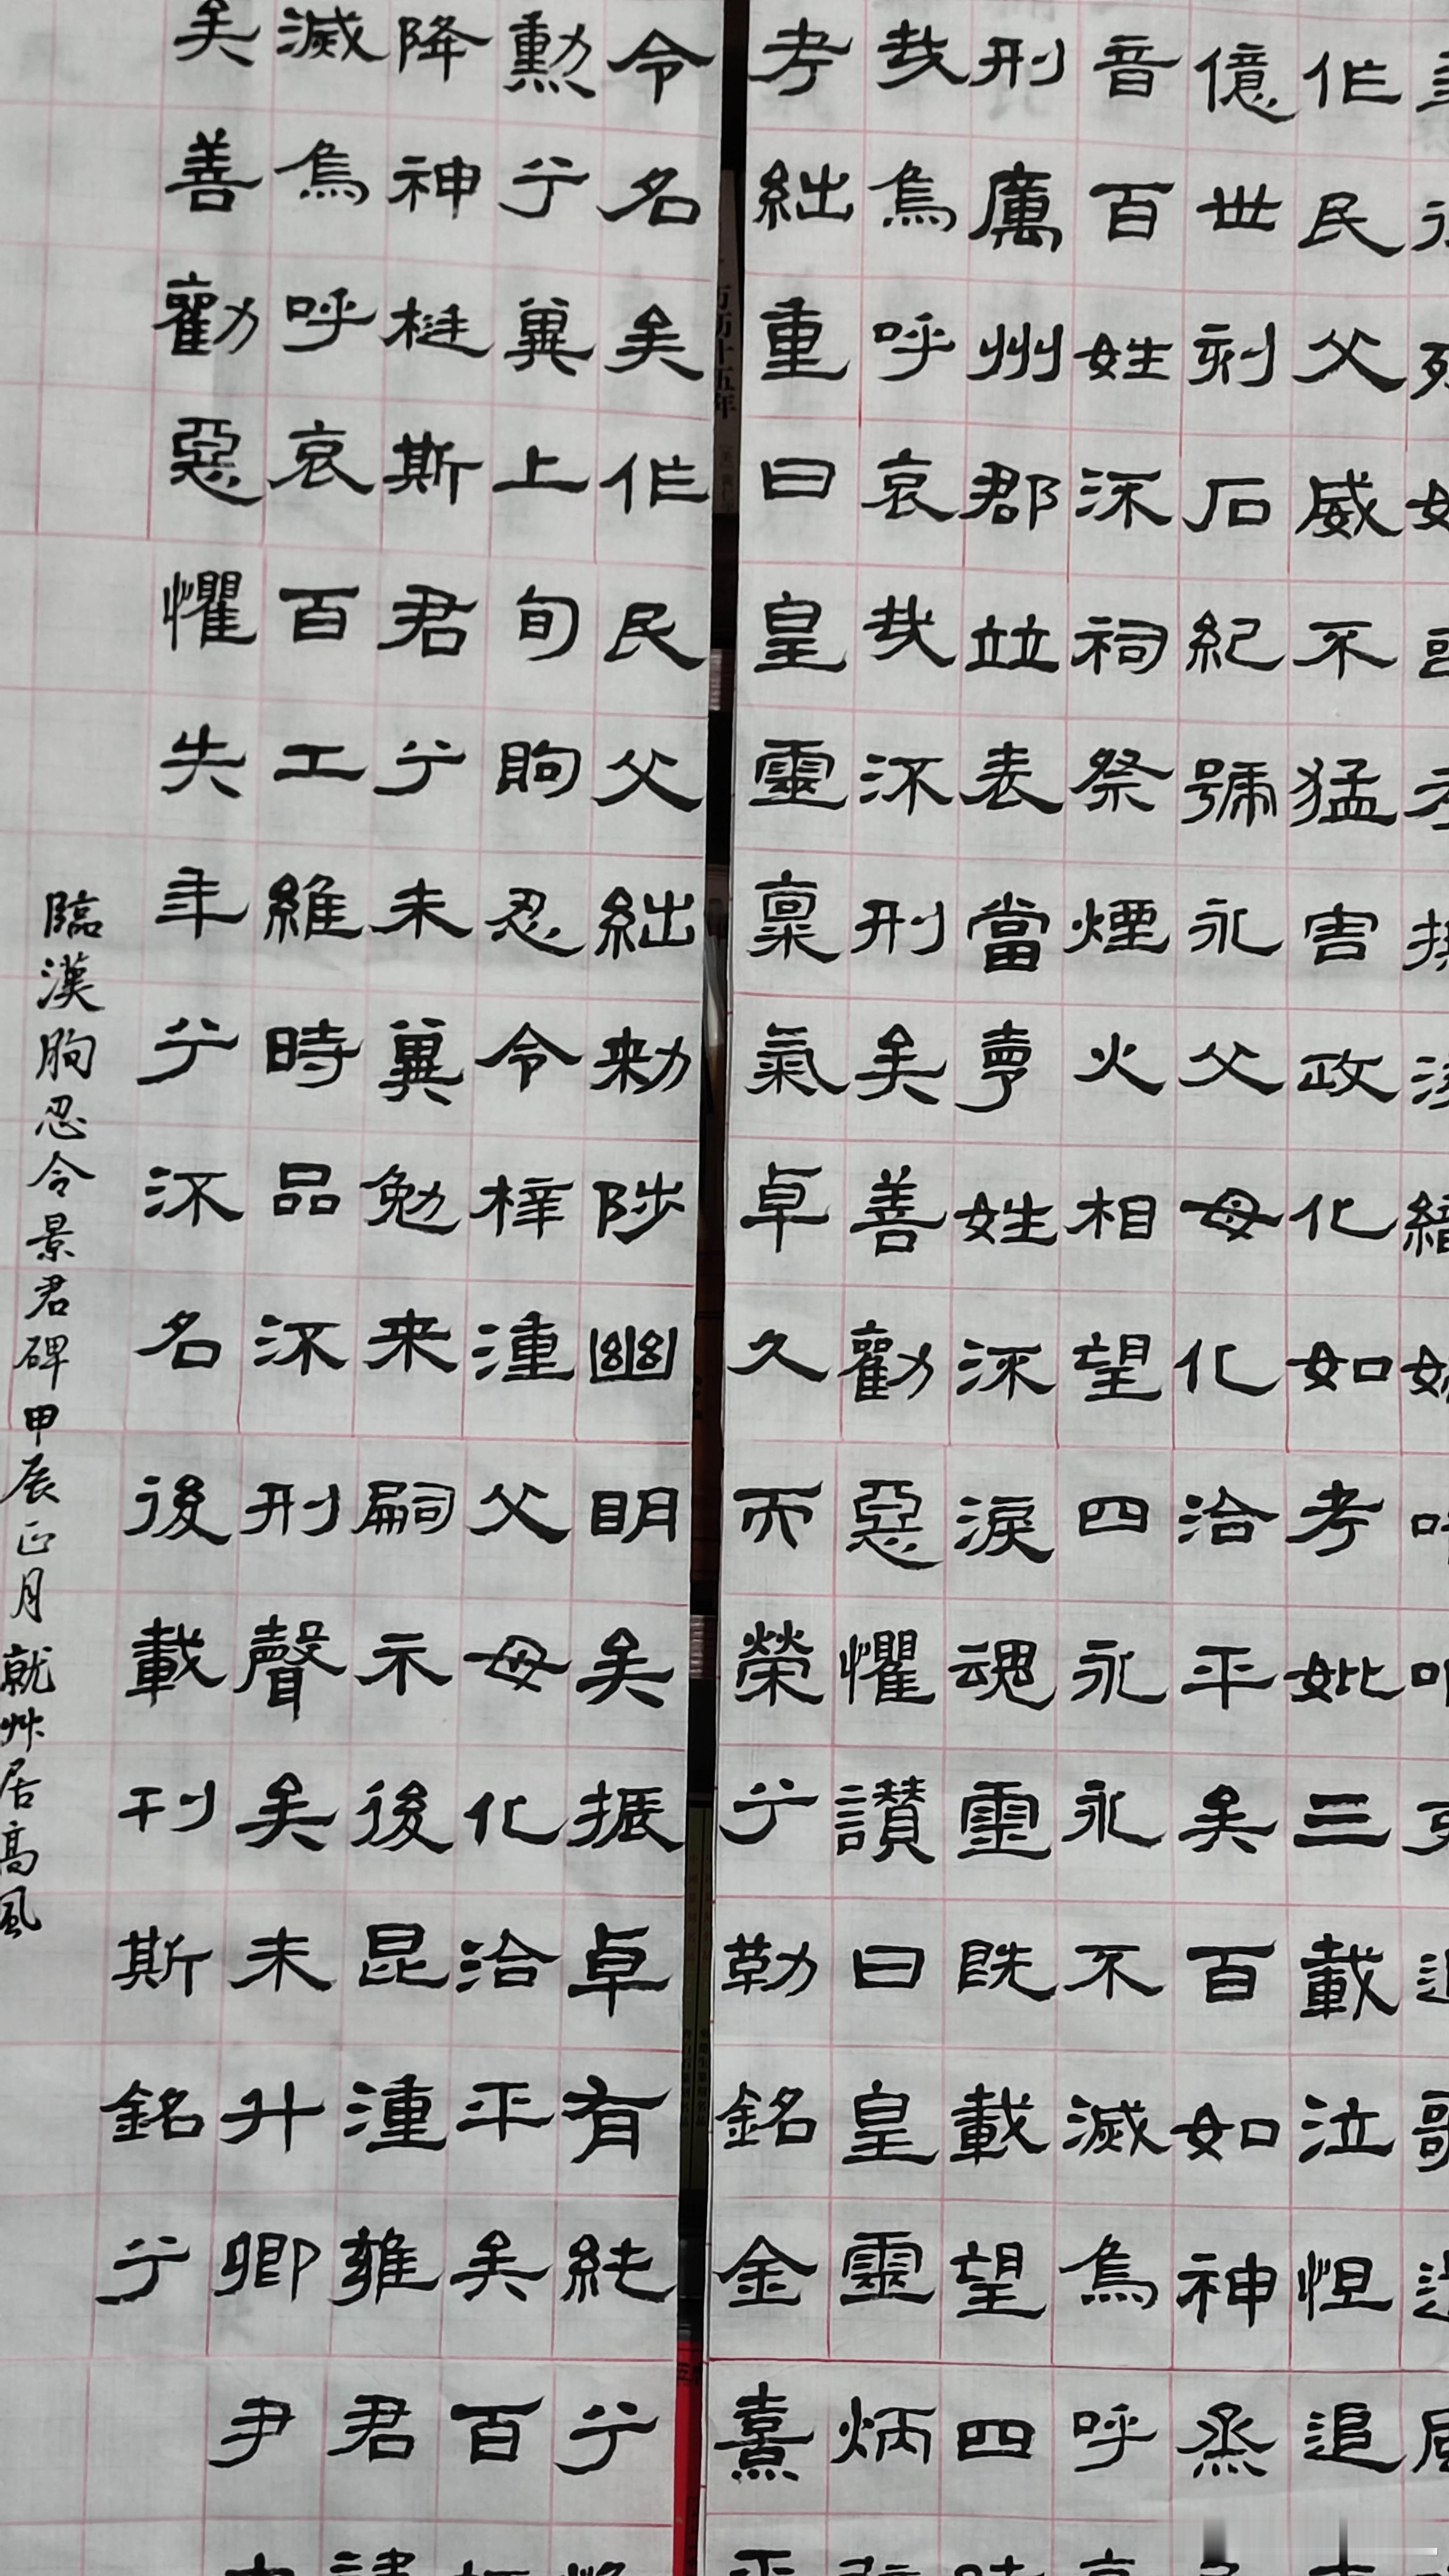 作民父威不猛害政化如考妣三載泣怛追
億世刻石紀號永父母化洽平矣百如神烝
音百姓流祠祭煙火相望四永永不滅烏呼
刑厲州郡竝表當享姓流淚魂靈既載望四
哉烏呼哀哉流刑矣善勸惡懼讃曰皇靈炳
考絀重曰皇靈稟氣卓久而榮兮勒銘金熹
令名矣作民父絀勑陟幽明矣振卓有純兮
勳兮冀上旬朐忍令梓潼父母化洽平矣百
降神梴斯君兮未冀勉来嗣示後昆潼雍君
滅烏呼哀百工維時品流刑聲矣未升卿尹
矣善勸惡懼失年兮流名後載刊斯銘兮
臨漢朐忍令景君碑甲辰正月就艸居高風